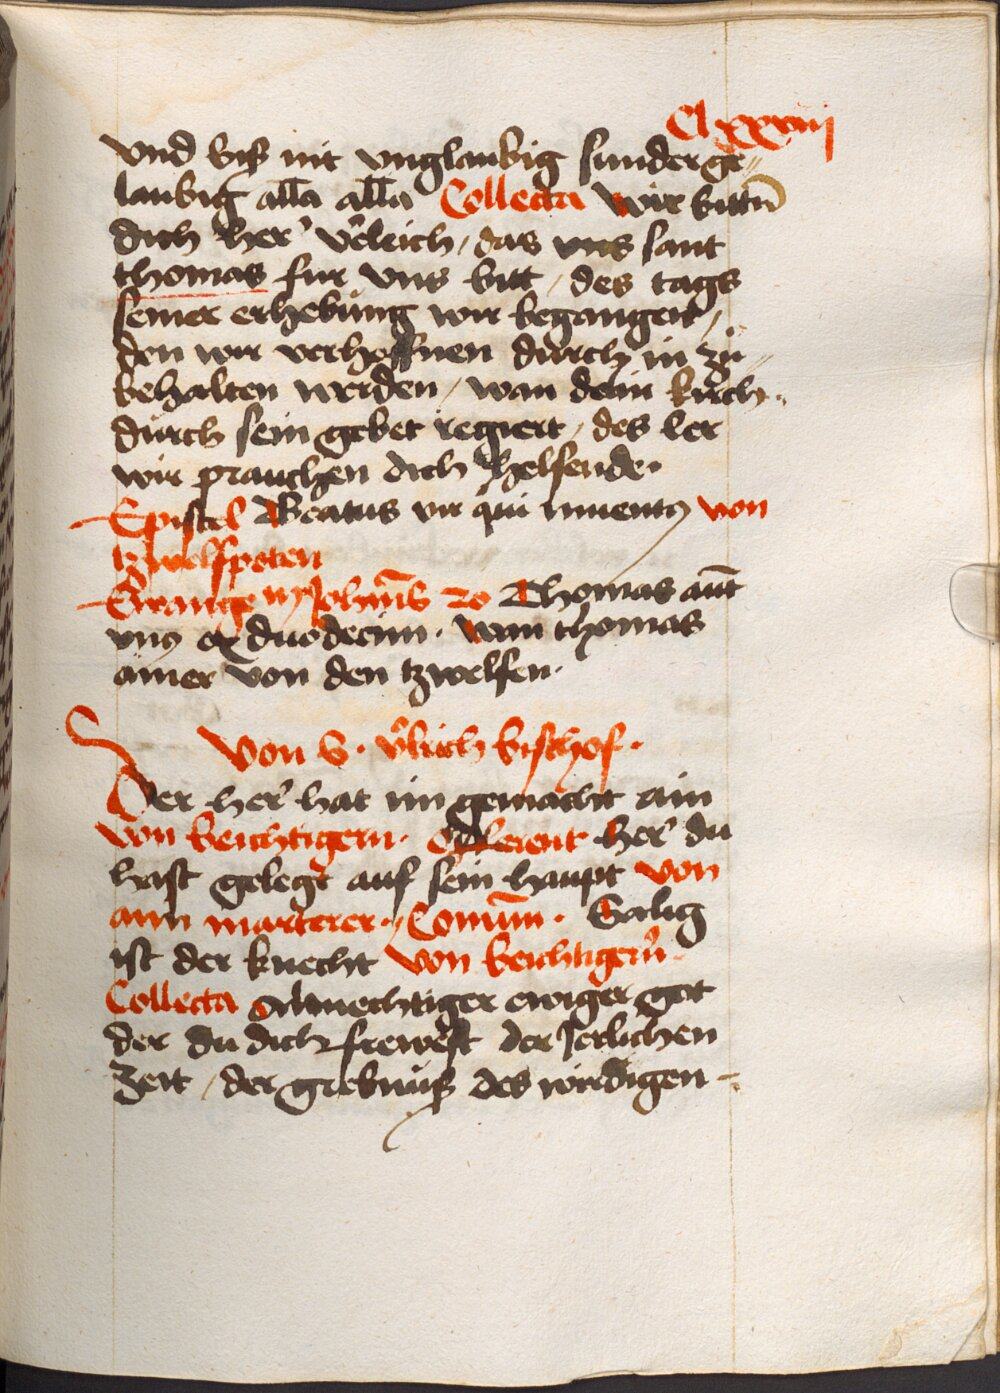 Clxxxiiij
vnd biß nit vnglaubig sunder ge⸗
laubig alla alla Collecta wir bittn̄
dich her' v̈leich / das vns sant
thomas fur vns bitt / des tags
seiner erhebung wir begangen /
den wir verhoffnen durch in zů⸗
behalten werden / wan dein kirch
durch sein gebet regiert / des ler
wir prauchen dich helfende.
Epistel Beatus vir qui inuentꝰ von
tzwelfpoten
Ewange Johan̄s 20 Thomas aut̄
vnꝰ ex duodecim. wan thomas
ainer von den tzwelfen.
Von S. v̊lrich bischof.
Der her' hat im gemacht ain
von beichtigern. her' du
hast gelegt auf sein haupt von
aim marterer. Com̄un. Salig
ist der knecht von beichtigern̄
Collecta Almechtiger ewiger got
der du dich frewest der Jerlichen
zeit / der grebnuß des wirdigen